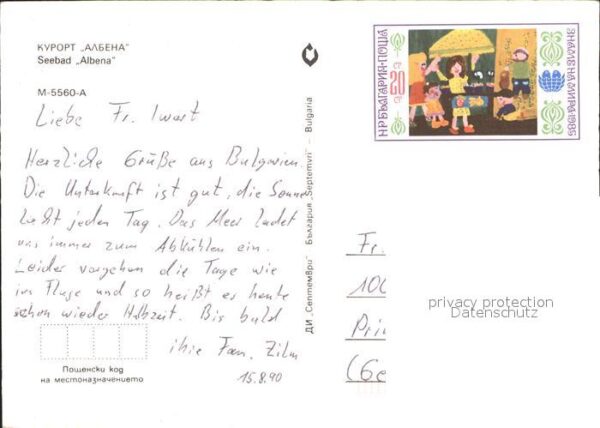 КУРОРТ „АЛБЕНА"
Seebad „Albena"
М-5560-А
Liebe Fr. Iwart
Herzliche Grüße aus Bulgarien.
Die Unterkunft ist gut, die Sonne
lacht jeden Tag. Das Meer ladet
uns immer zum Abkühlen ein.
Leider vergehen die Tage wie
im Fluge und so heißt es heute
schon wieder Halbzeit. Bis bald
ihre Fam. Zilm
15.8.90
Пощенски код
на местоназначението
ДИ „Септември" България „Septemvri" — Bulgaria
НР БЪЛГАРИЯ•ПОЩА
20 СТ
ЗНАМЕ НА МИРА 1985
Fr.
100
Pri
(Ge
privacy protection
Datenschutz